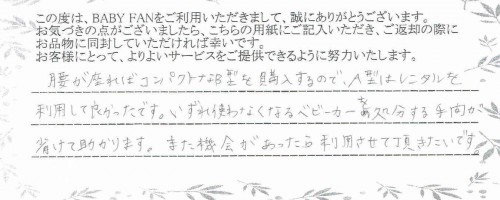 この度は、BABY FANをご利用いただきまして、誠にありがとうございます。
お気づきの点がございましたら、こちらの用紙にご記入いただき、ご返却の際に
お品物に同封していただければ幸いです。
お客様にとって、よりよいサービスをご提供できるように努力いたします。
腰が座ればコンパクトなB型を購入するので、A型はレンタルを
利用して良かったです。いずれ使わなくなるベビーカーを処分する手間が
省けて助かります。また機会があったら利用させて頂きたいです。